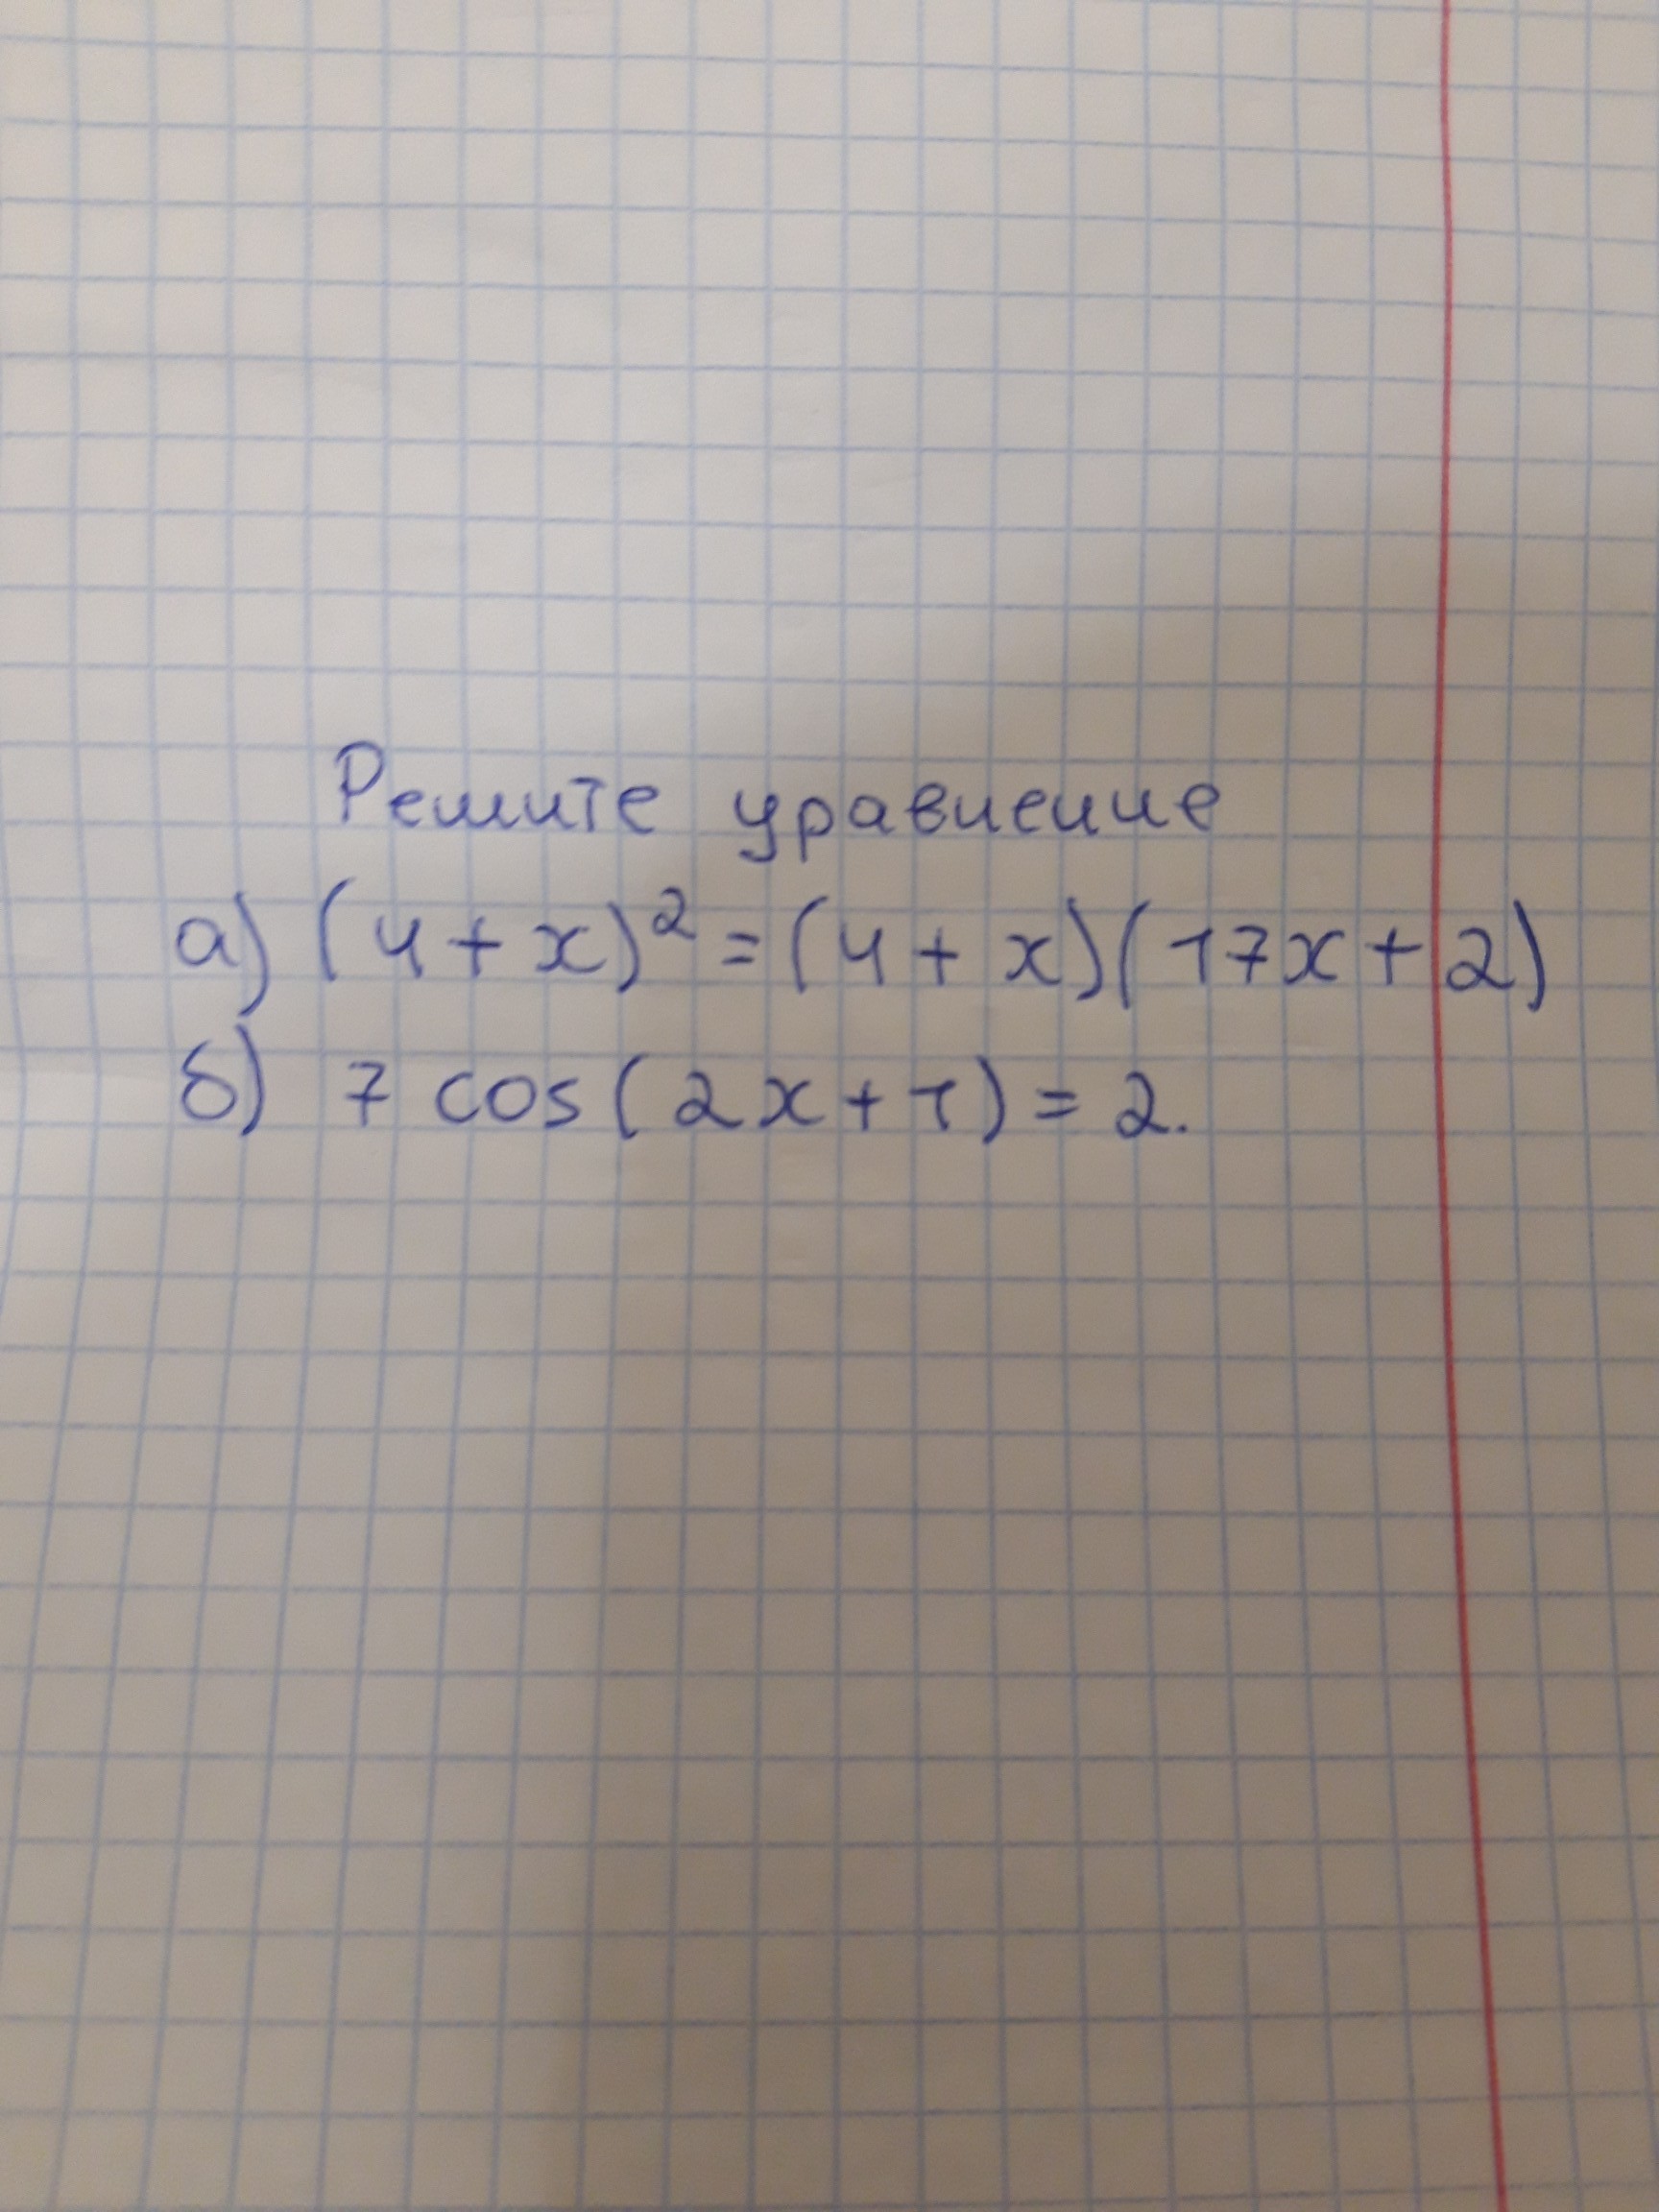 Решите уравнение
а) (4+x)² = (4+x)(17x+2)
б) 7 cos(2x+1) = 2.